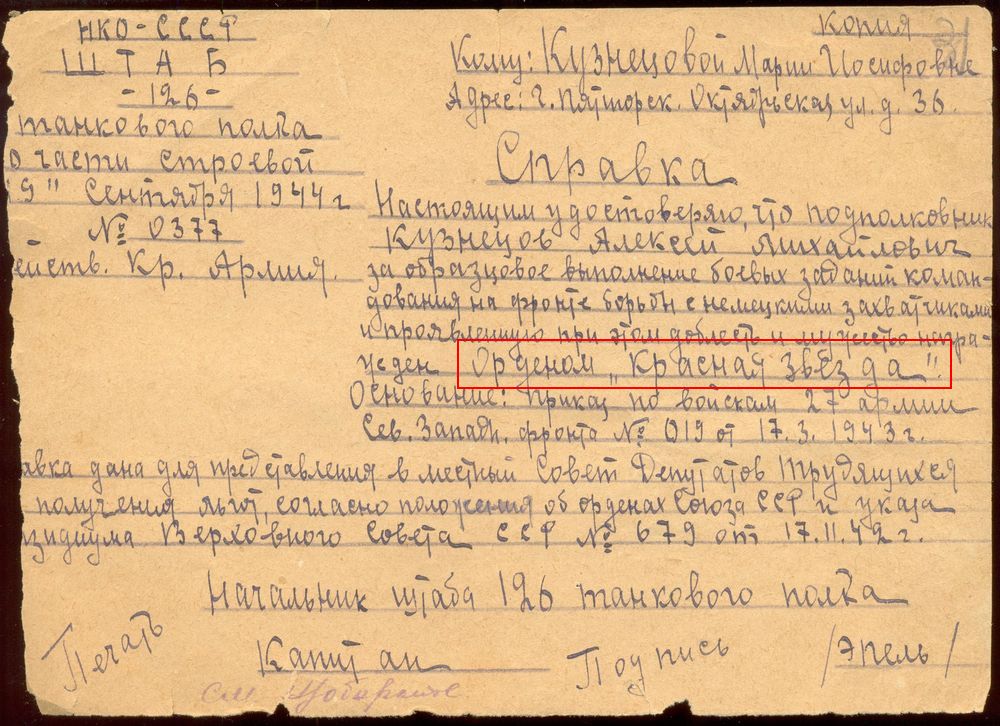 Копия
НКО-СССР
ШТАБ
-126-
танкового полка
о части строевой
19" Сентября 1944 г
№ 0377
Кр. Армия.
Кому: Кузнецовой Марии Иосифовне
Адрес: г. Пятигорск. Октябрьская ул. д. 36.
Справка
Настоящим удостоверяю, что подполковник
Кузнецов Алексей Михайлович
за образцовое выполнение боевых заданий коман-
дования на фронте борьбы с немецкими захватчиками
и проявленную при этом доблесть и мужество награ-
жден Орденом „Красная Звезда".
Основание: Приказ по войскам 27 армии
Сев. Западн. фронта № 019 от 17.3.1943 г.
авка дана для представления в местный Совет Депутатов Трудящихся
получения льгот, согласно положения об орденах Союза ССР и указа
зидиума Верховного Совета ССР № 679 от 17.11.42 г.
Начальник штаба 126 танкового полка
Печать Капитан Подпись /Эпель/
см